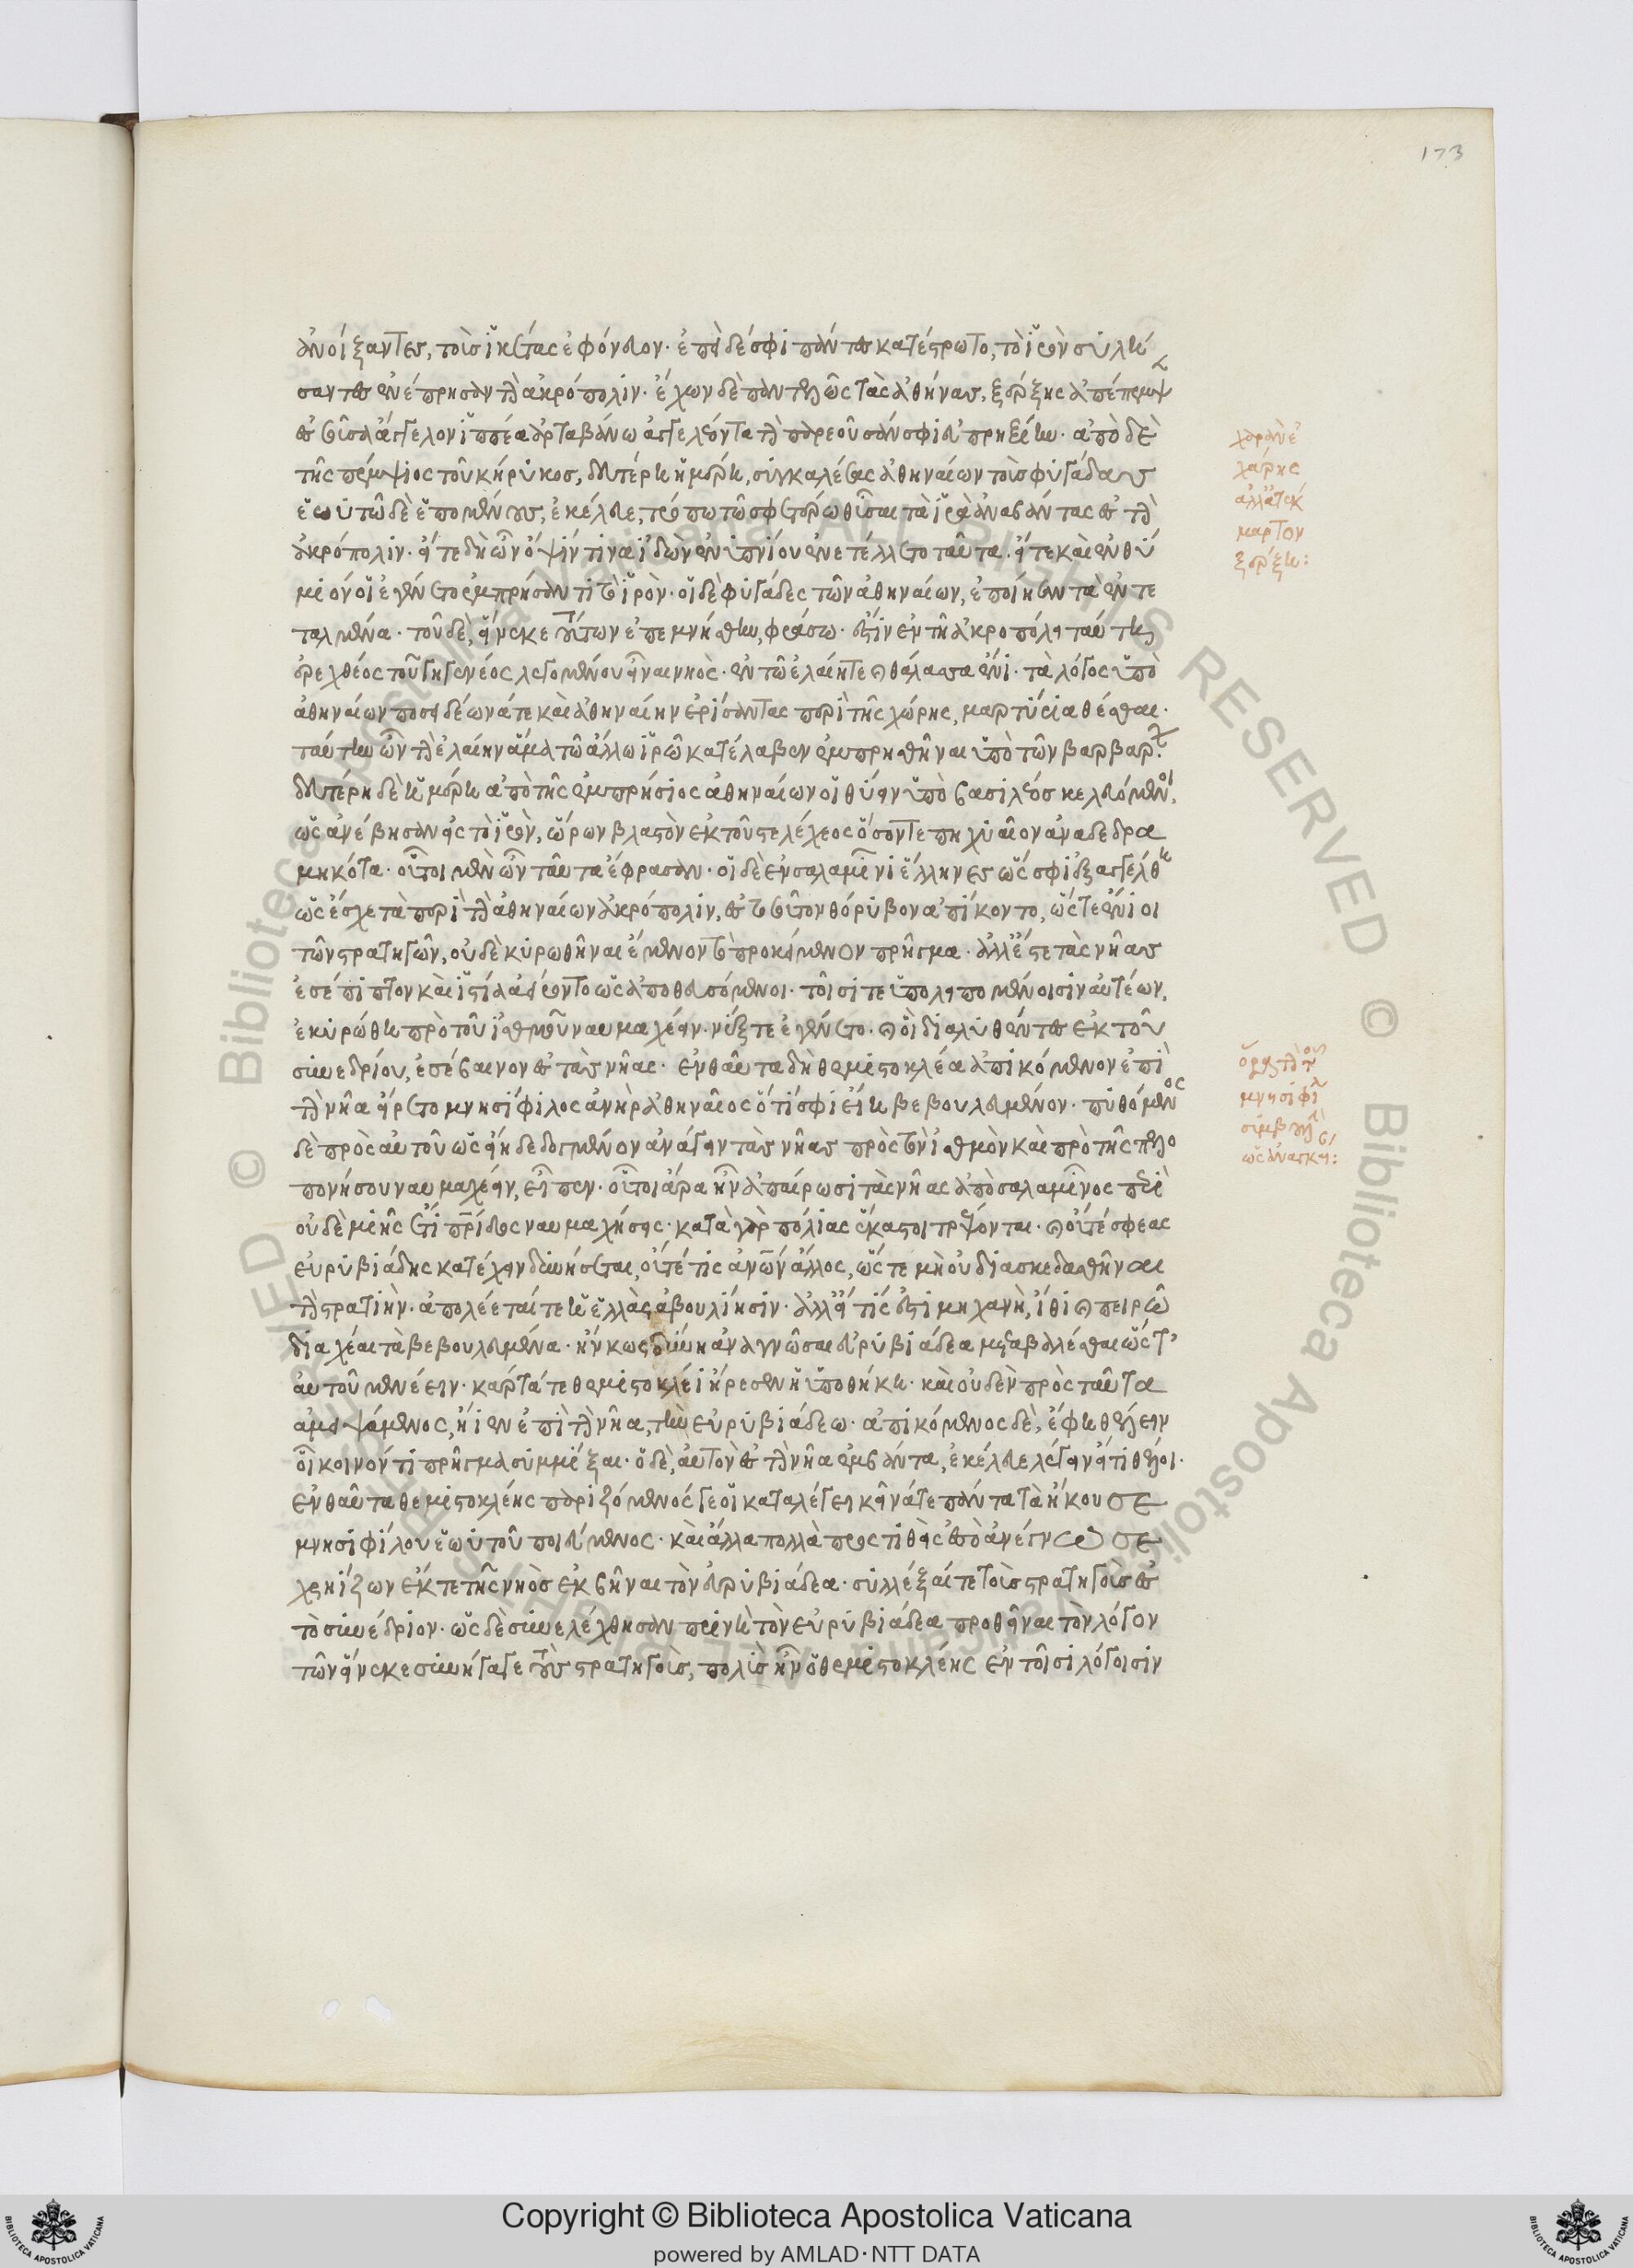 173
ἀνοίξαντες, τοὺς ἱκέτας ἐφόνευον· ἐπεὶ δέ σφι πάντες κατέστρωτο, τὸ ἱρὸν συλή
σαντες ἐνέπρησαν τὴν ἀκρόπολιν· ἔχων δὲ παντελῶς τὰς ἀθήνας, ξέρξης ἀπέπεμψε
ἐς σοῦσα ἄγγελον ἱππέα ἀρταβάνω ἀγγελέοντα τὴν παρεοῦσάν σφι εὐπρηξίην· ἀπὸ δὲ
τῆς πέμψιος τοῦ κήρυκος, δευτέρη ἡμέρη, συγκαλέσας ἀθηναίων τοὺς φυγάδας
ἑωυτῶ δὲ ἑπομένους, ἐκέλευε, τρόπω τῶ σφετέρω θῦσαι τὰ ἱρὰ ἀναβάντας ἐς τὴν
ἀκρόπολιν· εἴτε δὴ ὦν ὄψιν τινα ἰδὼν ἐνυπνίου ἐνετέλλετο ταῦτα· εἴτε καὶ ἐνθύ
μιόν οἱ ἐγένετο ἐμπρήσαντι τὸ ἱρόν· οἱ δὲ φυγάδες τῶν ἀθηναίων, ἐποίησαν τὰ ἐντε
ταλμένα· τοῦ δὲ, εἵνεκε τούτων ἐπεμνήσθην, φράσω· ἔστιν ἐν τῆ ἀκροπόλι ταύτη
ἐρεχθέος τοῦ γηγενέος λεγομένου εἶναι νηὸς· ἐν τῶ ἐλαίη τε καὶ θάλασσα ἔνι· τὰ λόγος ὑπὸ
ἀθηναίων ποσειδέωνά τε καὶ ἀθηναίην ἐρίσαντας περὶ τῆς χώρης, μαρτύρια θέσθαι·
ταύτην ὦν τὴν ἐλαίην ἅμα τῶ ἄλλω ἱρῶ κατέλαβεν ἐμπρησθῆναι ὑπὸ τῶν βαρβάρων
δευτέρη δὲ ἡμέρη ἀπὸ τῆς ἐμπρήσιος ἀθηναίων οἱ θύειν ὑπὸ βασιλέος κελευόμενοι,
ὡς ἀνέβησαν ἐς τὸ ἱρὸν, ὥρων βλαστὸν ἐκ τοῦ στελέχεος ὅσον τε πηχυαῖον ἀναδεδρα
μηκότα· οὗτοι μὲν ὦν ταῦτα ἔφρασαν· οἱ δὲ ἐν σαλαμῖνι ἕλληνες ὥς σφι ἐξαγγέλθη
ὡς ἔσχε τὰ περὶ τὴν ἀθηναίων ἀκρόπολιν, ἐς τοσοῦτον θόρυβον ἀπίκοντο, ὥστε ἔνιοι
τῶν στρατηγῶν, οὐδὲ κυρωθῆναι ἔμενον τὸ προκείμενον πρῆγμα· ἀλλ' ἔς τε τὰς νῆας
ἐσέπιπτον καὶ ἱστία ἀείροντο ὡς ἀποθευσόμενοι· τοῖσί τε ὑπολειπομένοισιν αὐτέων,
ἐκυρώθη πρὸ τοῦ ἰσθμοῦ ναυμαχέειν· νύξ τε ἐγένετο· καὶ οἳ διαλυθέντες ἐκ τοῦ
συνεδρίου, ἐσέβαινον ἐς τὰς νῆας· ἐνθαῦτα δὴ θεμιστοκλέα ἀπικόμενον ἐπὶ
τὴν νῆα εἴρετο μνησίφιλος ἀνὴρ ἀθηναῖος ὅ τί σφι εἴη βεβουλευμένον· πυθόμενος
δὲ πρὸς αὐτοῦ ὡς εἴη δεδογμένον ἀνάγειν τὰς νῆας πρὸς τὸν ἰσθμὸν καὶ πρὸ τῆς πελο
πονήσου ναυμαχέειν, εἶπεν· οὗτοι ἄρα ἢν ἀπαίρωσι τὰς νῆας ἀπὸ σαλαμῖνος περὶ
οὐδὲ μιῆς ἔτι πατρίδος ναυμαχήσεις· κατὰ γὰρ πόλιας ἕκαστοι τρέψονται· καὶ οὔτέ σφεας
εὐρυβιάδης κατέχειν δυνήσεται, οὔτέ τις ἀνθρώπων ἄλλος, ὥστε μὴ οὐ διασκεδασθῆναι
τὴν στρατιὴν· ἀπολέεταί τε ἡ ἑλλὰς ἀβουλίησιν· ἀλλ' εἴ τίς ἐστι μηχανὴ, ἴθι καὶ πειρῶ
διαχέαι τὰ βεβουλευμένα· ἤν κως δύνη ἀναγνῶσαι εὐρυβιάδεα μεταβαλέσθαι ὥστ'
αὐτοῦ μενέειν· κάρτά τε θεμιστοκλέι ἤρεσεν ἡ ὑποθήκη· καὶ οὐδὲν πρὸς ταῦτα
ἀμειψάμενος, ἤιεν ἐπὶ τὴν νῆα, τὴν εὐρυβιάδεω· ἀπικόμενος δὲ, ἔφη θέλειν
οἷ κοινόν τι πρῆγμα συμμίξαι· ὁ δὲ, αὐτὸν ἐς τὴν νῆα ἐμβάντα, ἐκέλευε λέγειν εἴ τι θέλοι·
ἐνθαῦτα θεμιστοκλέης παριζόμενός γέ οἱ καταλέγει κεῖνά τε πάντα τὰ ἤκουσε
μνησιφίλου ἑωυτοῦ ποιεύμενος· καὶ ἄλλα πολλὰ προστιθεὶς ἐς ὃ ἀνέγνωσε
χρηίζων ἔκ τε τῆς νηὸς ἐκβῆναι τὸν εὐρυβιάδεα· συλλέξαί τε τοὺς στρατηγοὺς ἐς
τὸ συνέδριον· ὡς δὲ συνελέχθησαν πρὶν ἢ τὸν εὐρυβιάδεα προθεῖναι τὸν λόγον
τῶν εἵνεκε συνήγαγε τοὺς στρατηγοὺς, πολὺς ἦν ὁ θεμιστοκλέης ἐν τοῖσι λόγοισιν
μαρτον
ξέρξη:
μνησιφί
Copyright © Biblioteca Apostolica Vaticana
powered by AMLAD·NTT DATA